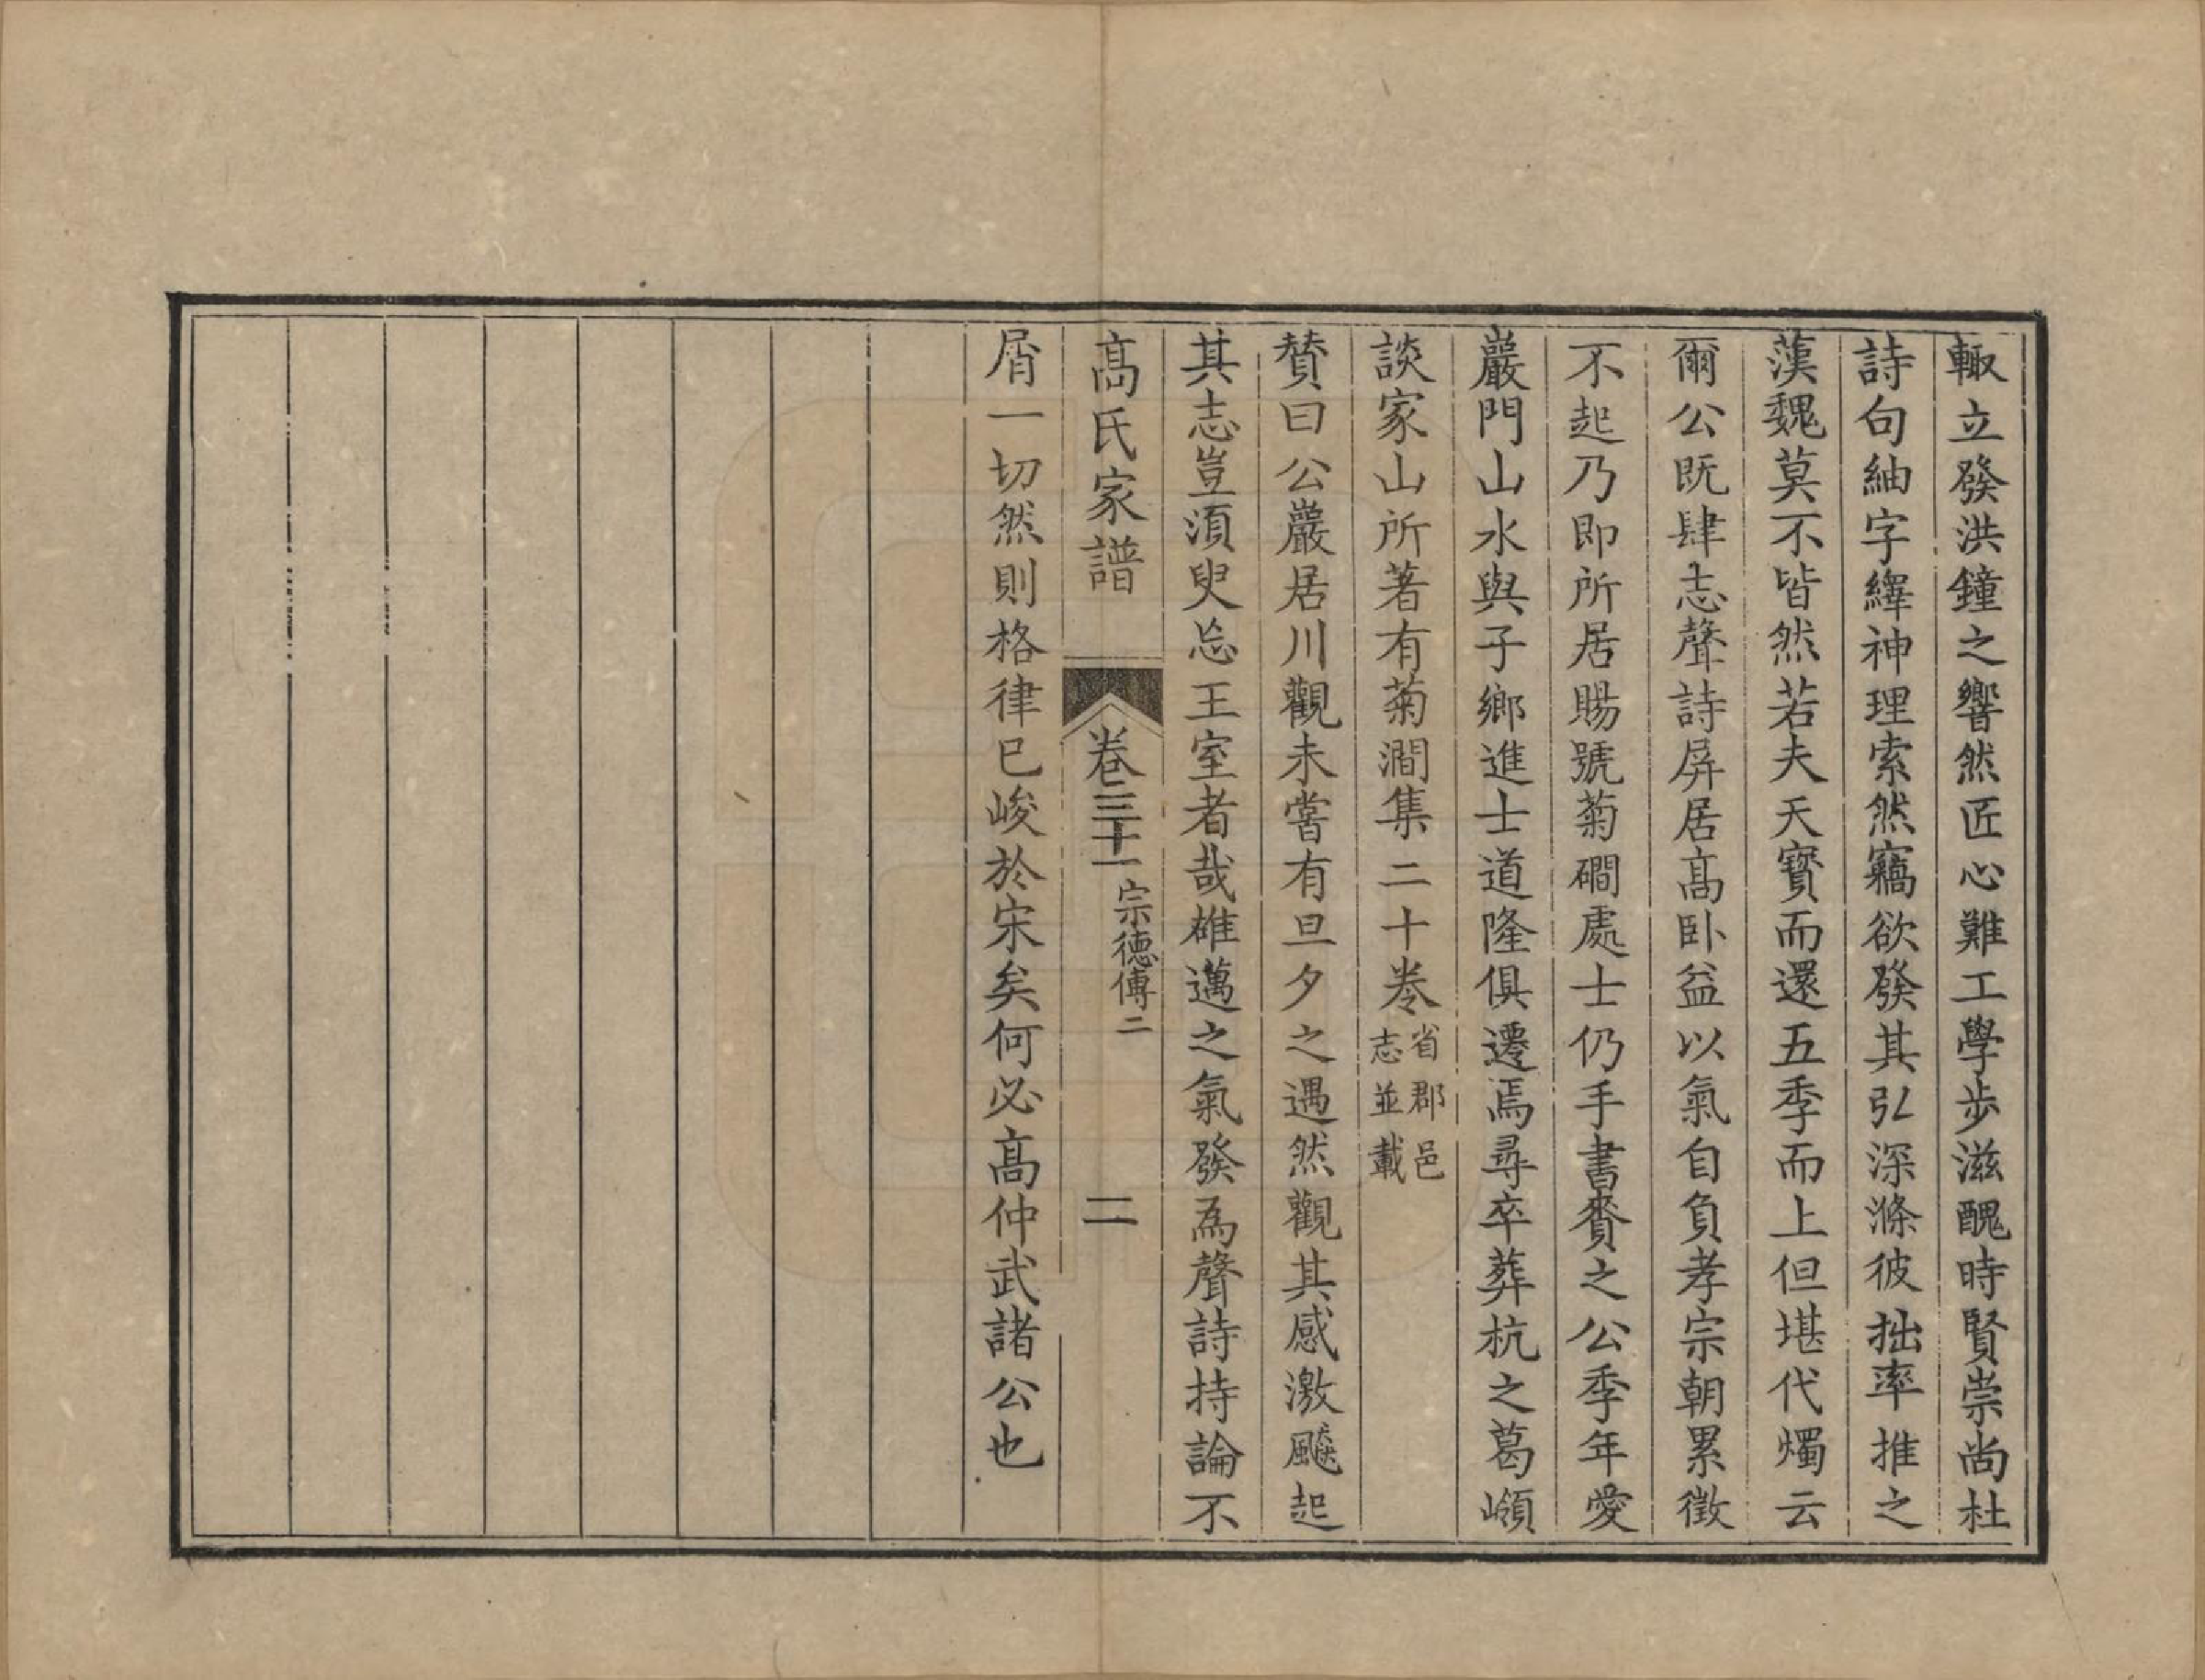 輙立發洪鐘之響然匠心難工學步滋醜時賢崇尚杜
詩句紬字繹神理索然竊欲發其弘深滌彼拙率推之
漢魏莫不皆然若夫天寳而還五季而上但堪代燭云
爾公既肆志聲詩屏居髙卧益以氣自負孝宗朝累徵
不起乃即所居賜號菊磵處士仍手書賚之公季年愛
巖門山水與子鄉進士道隆俱遷焉尋卒葬杭之葛嶺
談家山所著有菊澗集二十卷省郡邑志並載
賛曰公巖居川觀未嘗有旦夕之遇然觀其感激飈起
其志豈湏臾忘王室者哉雄邁之氣發為聲詩持論不
髙氏家譜 卷三十一 宗德傳二 二
屑一切然則格律已峻於宋矣何必髙仲武諸公也